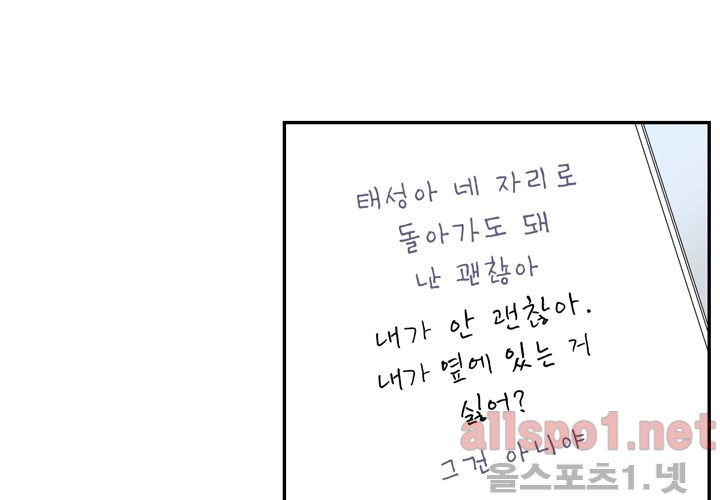 태성아 네 자리로
돌아가도 돼
난 괜찮아
내가 안 괜찮아.
내가 옆에 있는 거
싫어?
그건 아니야
allspo1.net
올스포츠1.넷